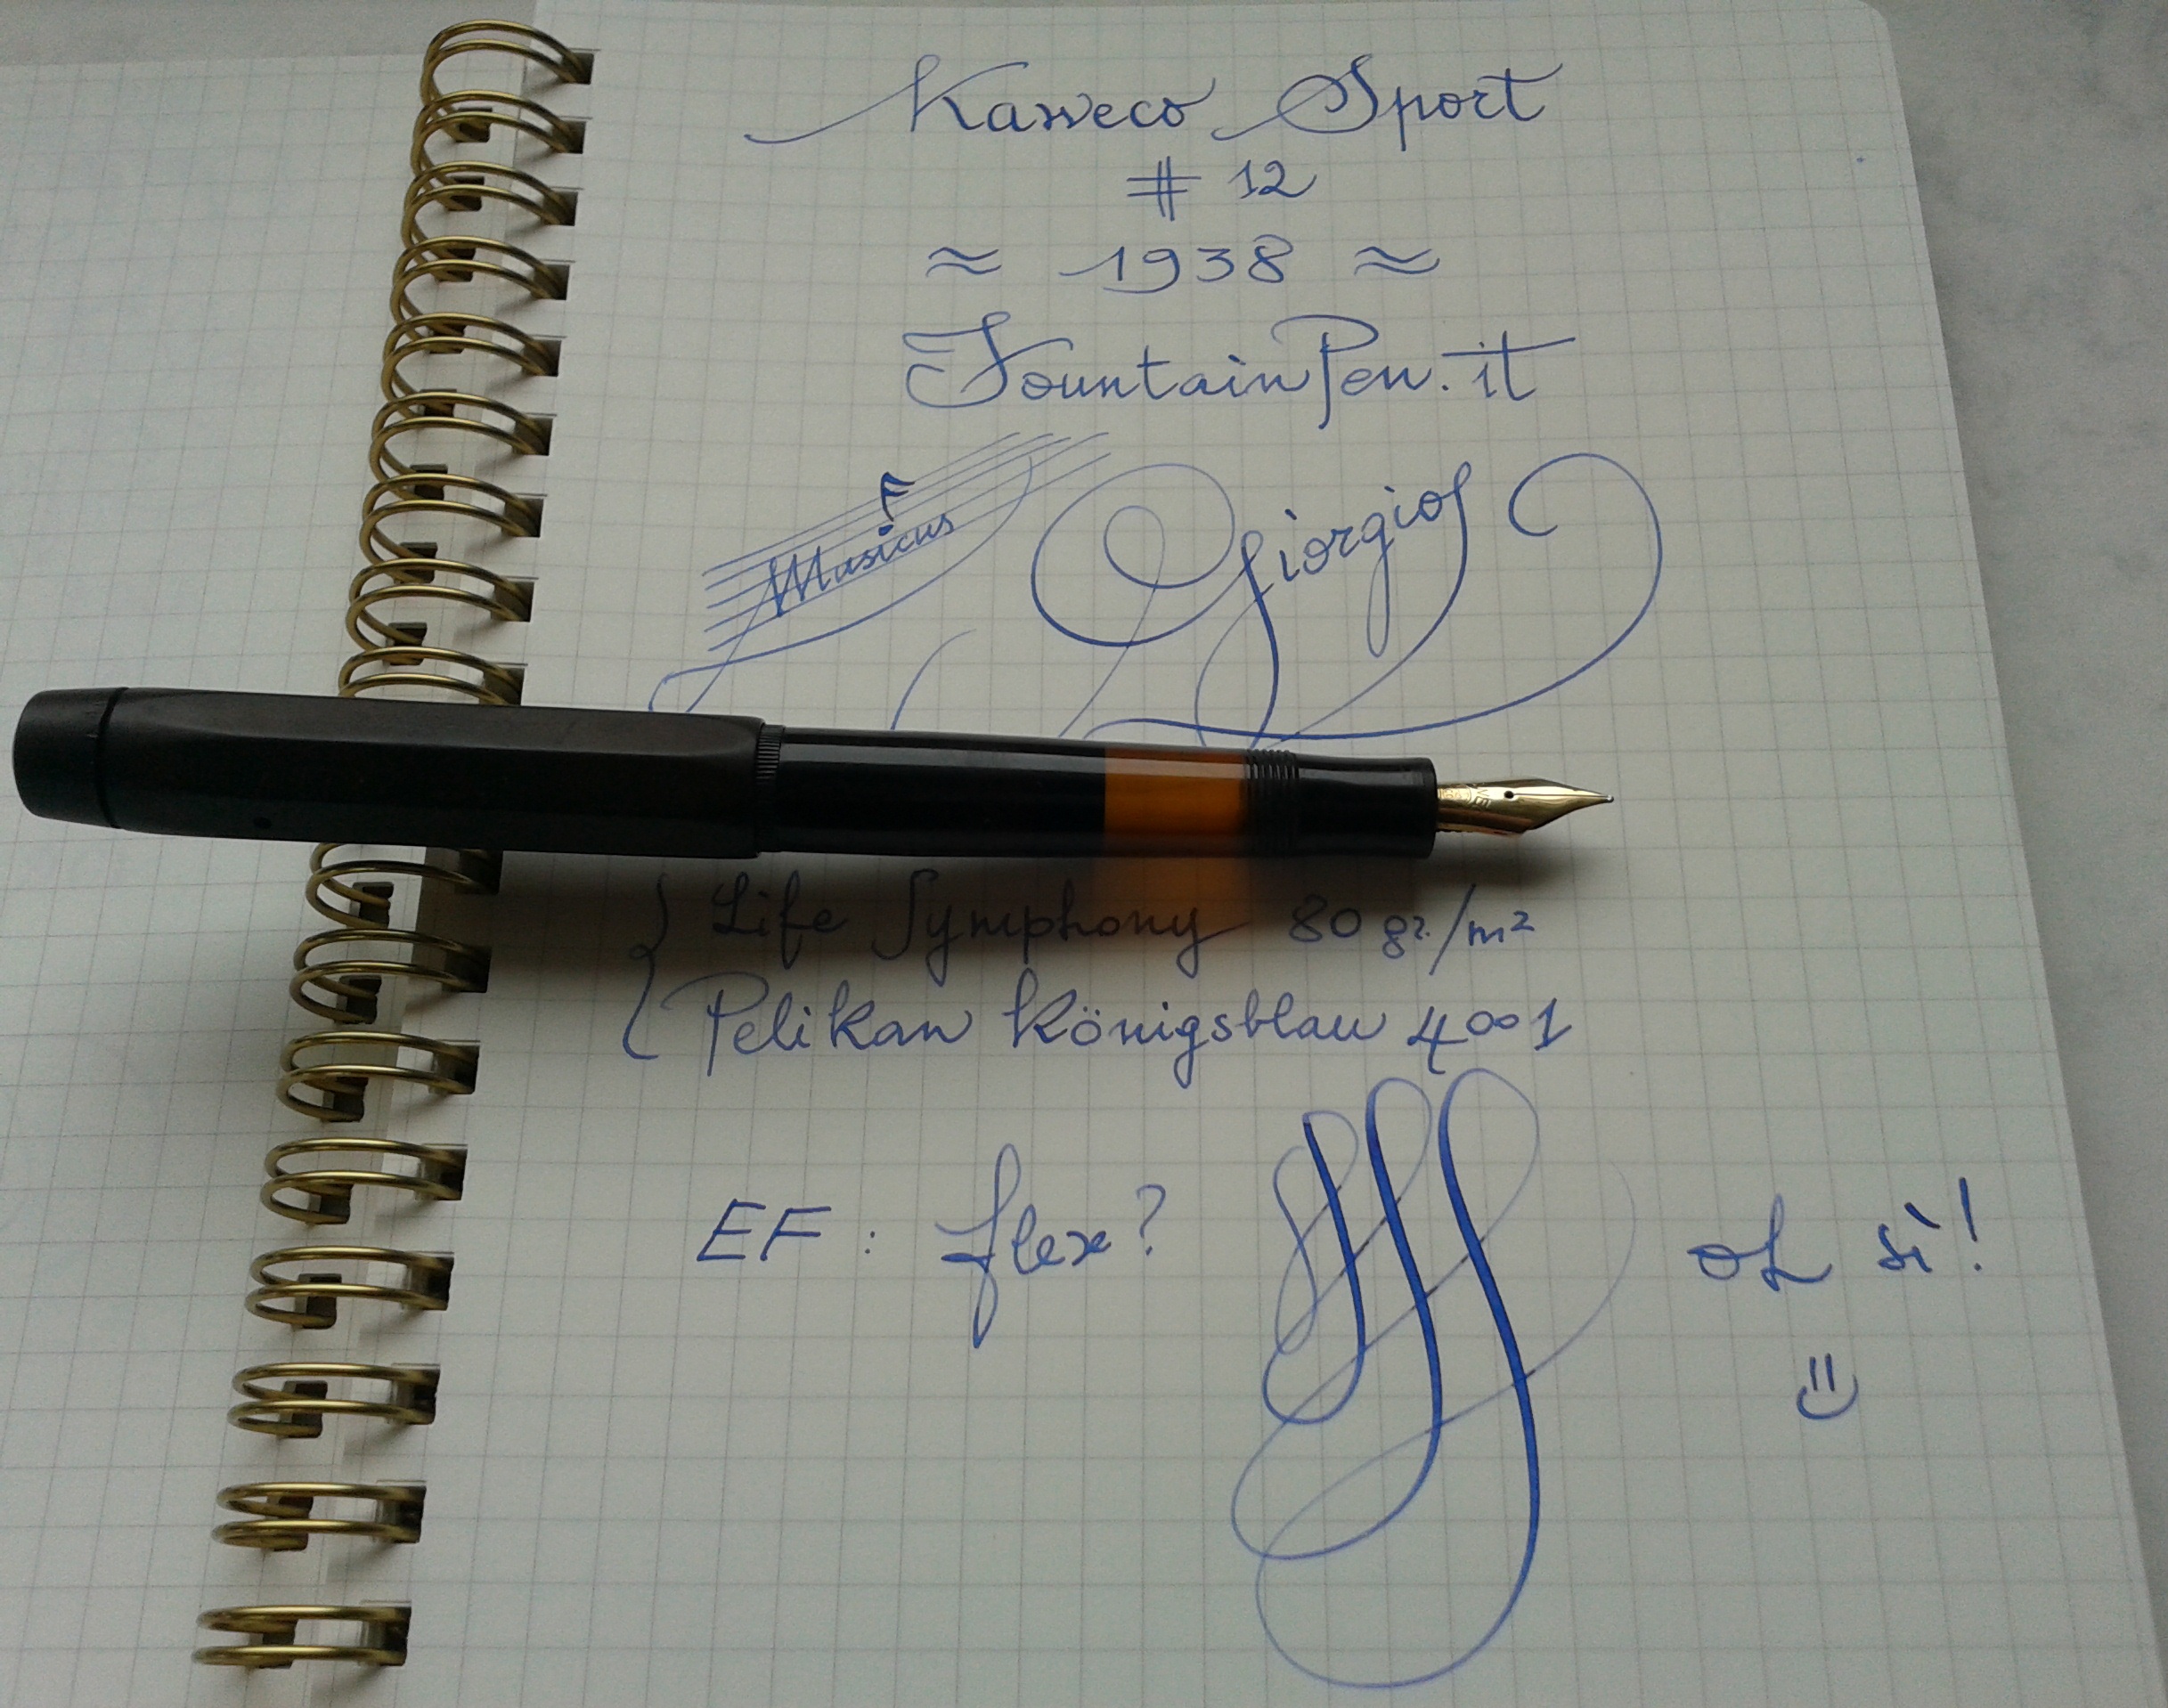 Kaweco Sport
# 12
≈ 1938 ≈
FountainPen.it
Musicus Giorgios
Life Symphony 80 gr/m²
Pelikan Königsblau 4001
EF: flex? oh sì!